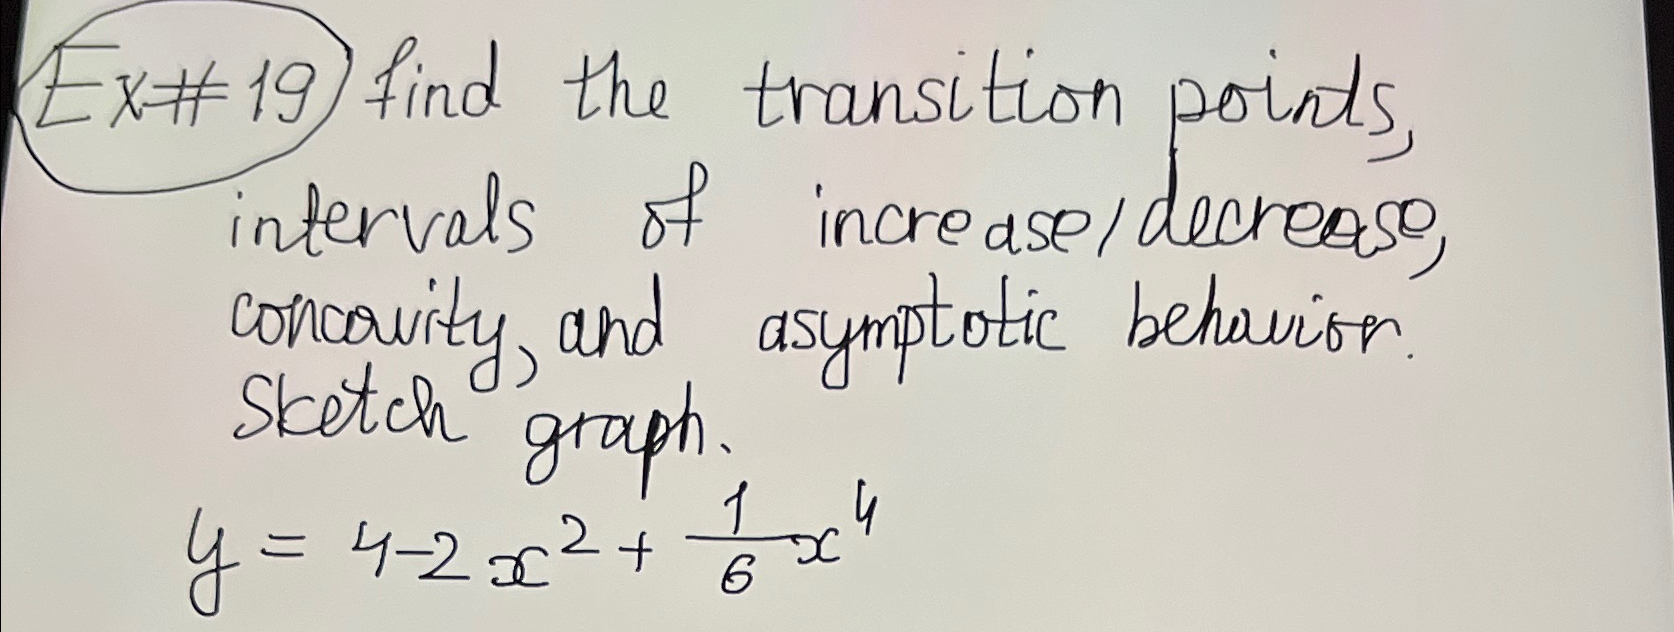 Ex#19) find the transition points,
intervals of increase/decrease,
concavity, and asymptotic behavior.
Sketch graph.
y = 4-2x² + 1/6 x⁴